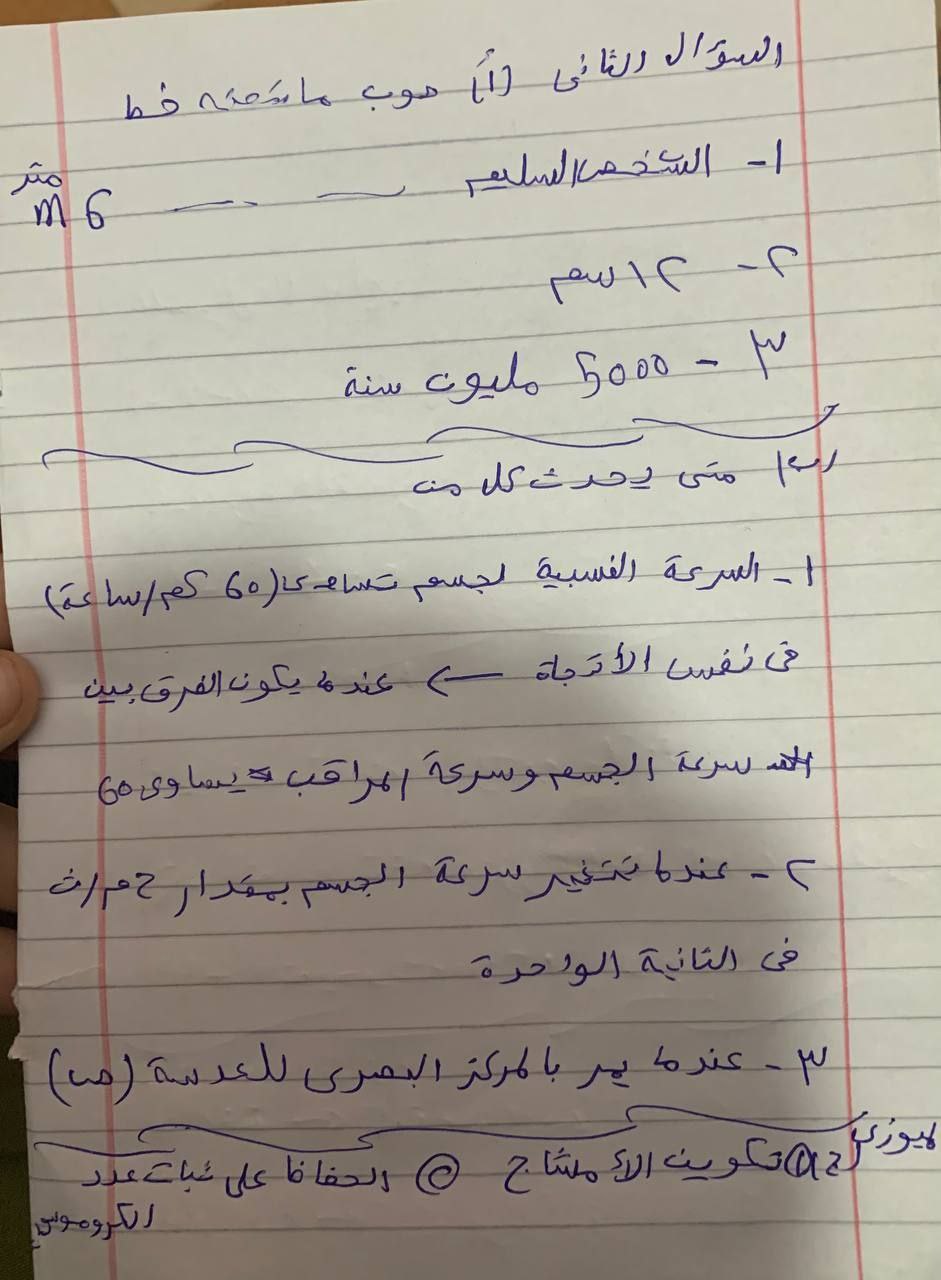 السؤال الثانى (أ) صوب ما تحته خط
١- الشخص السليم — — — 6 m متر
٢- ١٢ سم
٣- 5000 مليون سنة
(ب) متى يحدث كل من
١- السرعة النسبية لجسم تساوى (60 كم/ساعة)
فى نفس الأتجاة ← عندما يكون الفرق بين
سرعة الجسم وسرعة المراقب يساوى 60
٢- عندما تتغير سرعة الجسم بمقدار ٢م/ث
فى الثانية الواحدة
٣- عندما يمر بالمركز البصرى للعدسة (م)
ميوزى
(ج) ① تكوين الأمشاج ② الحفاظ على ثبات عدد